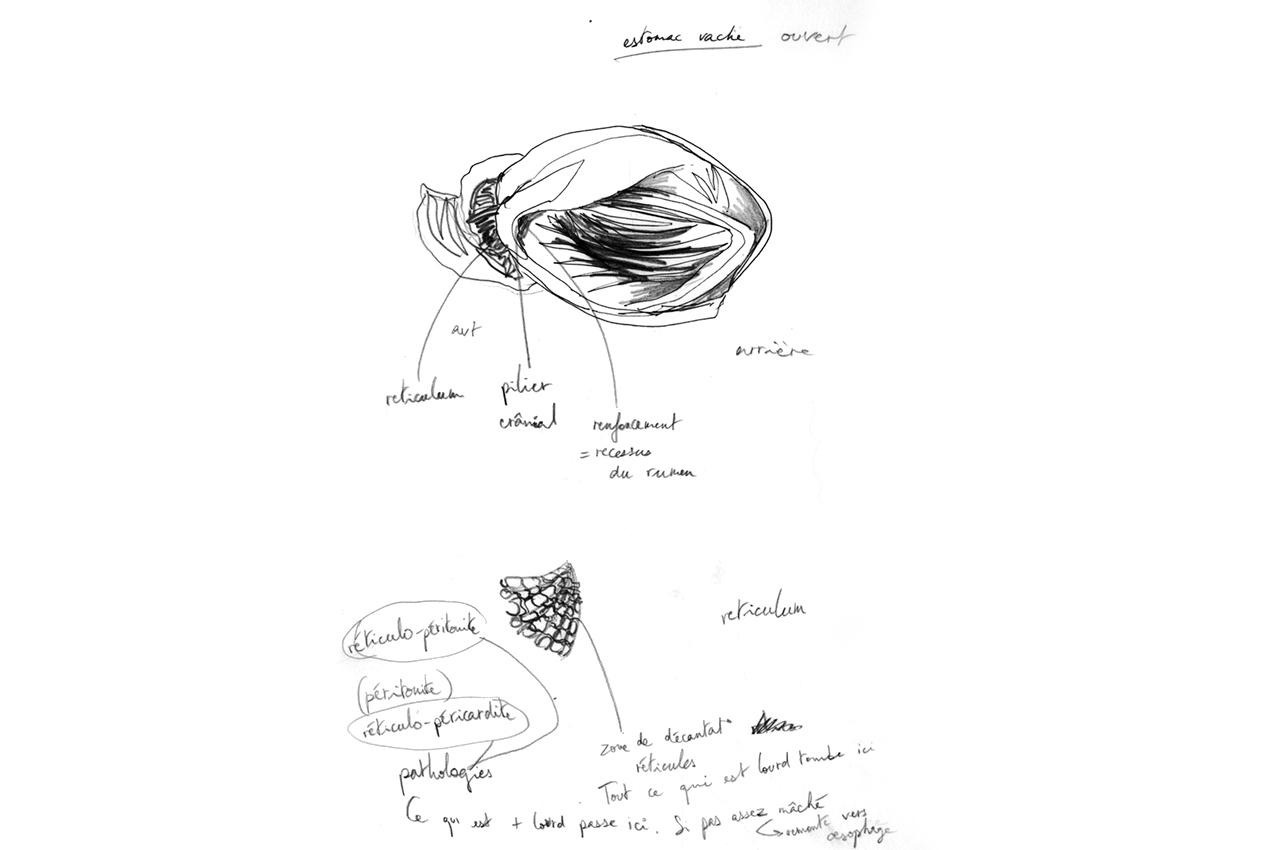 estomac vache ouvert
avt
arrière
reticulum
pilier
crânial
renforcement
= recessus
du rumen
reticulum
réticulo-péritonite
(péritonite)
réticulo-péricardite
pathologies
zone de décantat°
réticules
Tout ce qui est lourd tombe ici
Ce qui est + lourd passe ici. Si pas assez mâché
remonte vers
œsophage